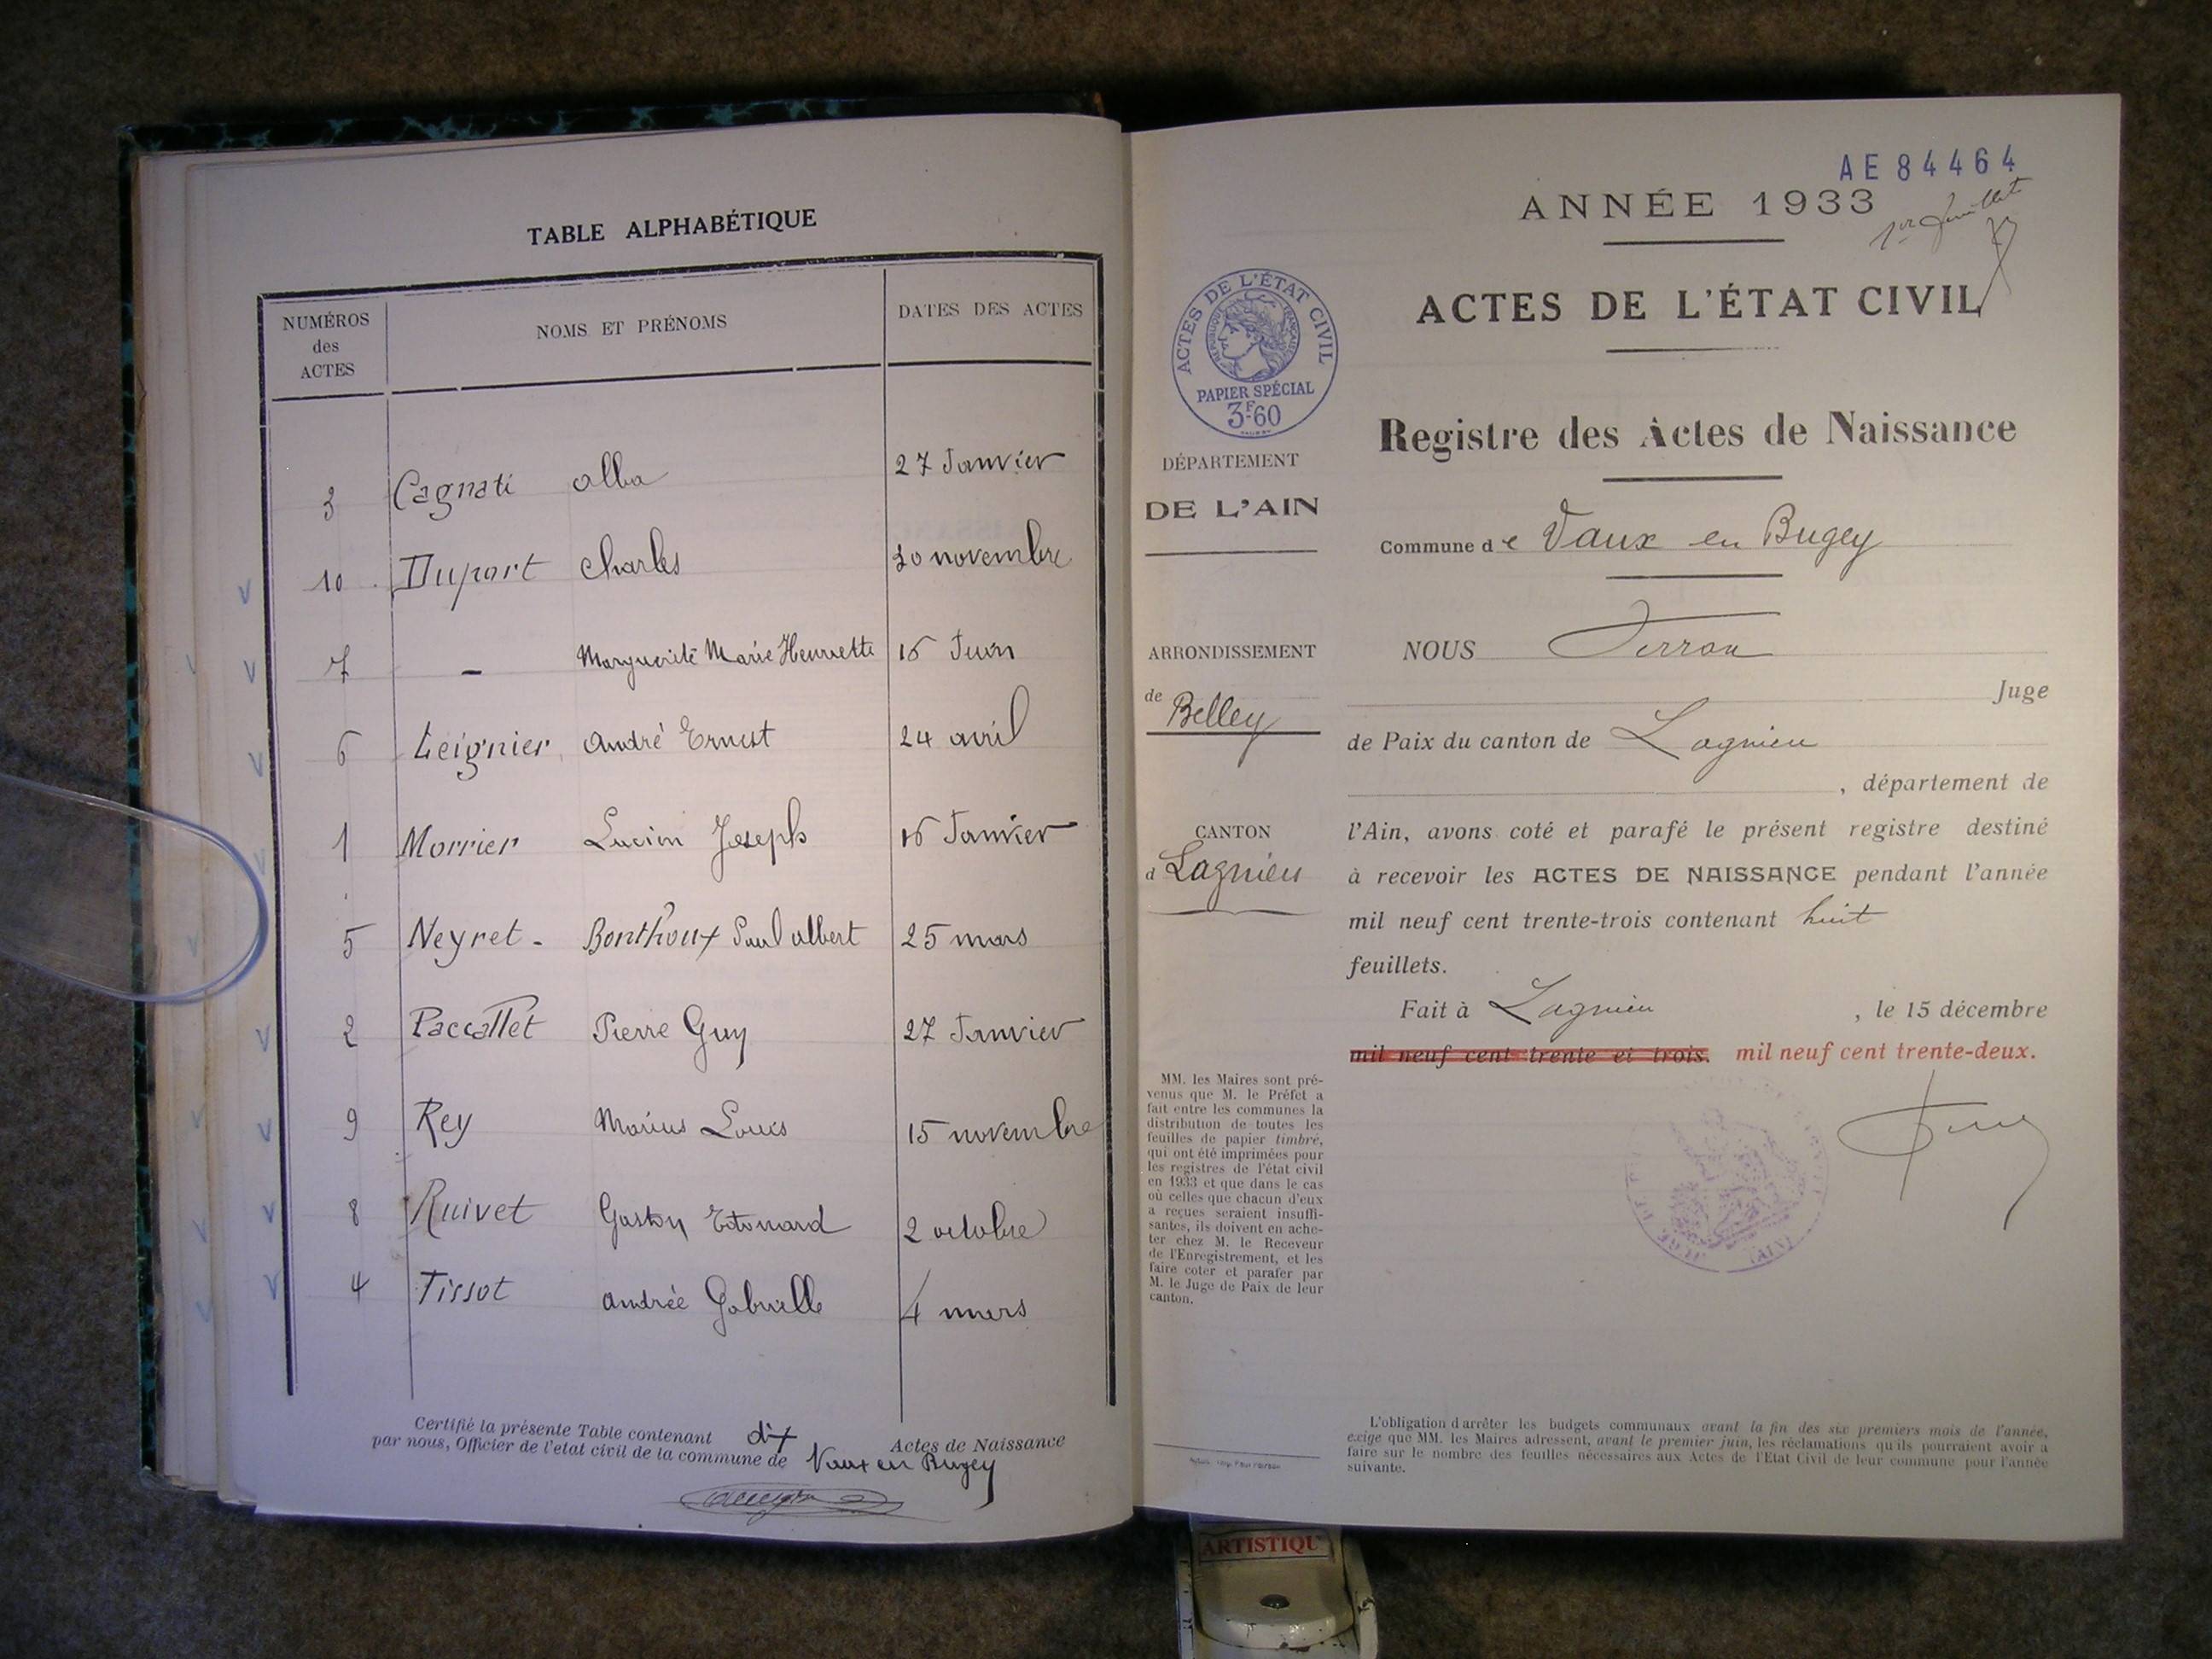 TABLE ALPHABÉTIQUE
NUMÉROS
des
ACTES
NOMS ET PRÉNOMS
DATES DES ACTES
3 Cagnati alba 27 Janvier
10 Duport Charles 20 novembre
7 – Marguerite Marie Henriette 16 Juin
6 Leignier André Ernest 24 avril
1 Morrier Lucien Joseph 16 Janvier
5 Neyret - Bonthoux Paul albert 25 mars
2 Paccallet Pierre Guy 27 Janvier
9 Rey Marius Louis 15 novembre
8 Ruivet Gaston Edouard 2 octobre
4 Tissot andrée Gabrielle 4 mars
Certifié la présente Table contenant dix Actes de Naissance
par nous, Officier de l'etat civil de la commune de Vaux en Bugey
AE 84464
ANNÉE 1933
1er feuillet
ACTES DE L'ÉTAT CIVIL
ACTES DE L'ÉTAT CIVIL
RÉPUBLIQUE FRANÇAISE
PAPIER SPÉCIAL
3F60
Registre des Actes de Naissance
DÉPARTEMENT
DE L'AIN
Commune de Vaux en Bugey
ARRONDISSEMENT
de Belley
CANTON
d Lagnieu
NOUS Ferran
Juge
de Paix du canton de Lagnieu
, département de
l'Ain, avons coté et parafé le présent registre destiné
à recevoir les ACTES DE NAISSANCE pendant l'année
mil neuf cent trente-trois contenant huit
feuillets.
Fait à Lagnieu , le 15 décembre
mil neuf cent trente et trois. mil neuf cent trente-deux.
MM. les Maires sont pré-
venus que M. le Préfet a
fait entre les communes la
distribution de toutes les
feuilles de papier timbré,
qui ont été imprimées pour
les registres de l'état civil
en 1933 et que dans le cas
où celles que chacun d'eux
a reçues seraient insuffi-
santes, ils doivent en ache-
ter chez M. le Receveur
de l'Enregistrement, et les
faire coter et parafer par
M. le Juge de Paix de leur
canton.
(AIN)
L'obligation d'arrêter les budgets communaux avant la fin des six premiers mois de l'année,
exige que MM. les Maires adressent, avant le premier juin, les réclamations qu'ils pourraient avoir a
faire sur le nombre des feuilles nécessaires aux Actes de l'Etat Civil de leur commune pour l'année
suivante.
ARTISTIQU